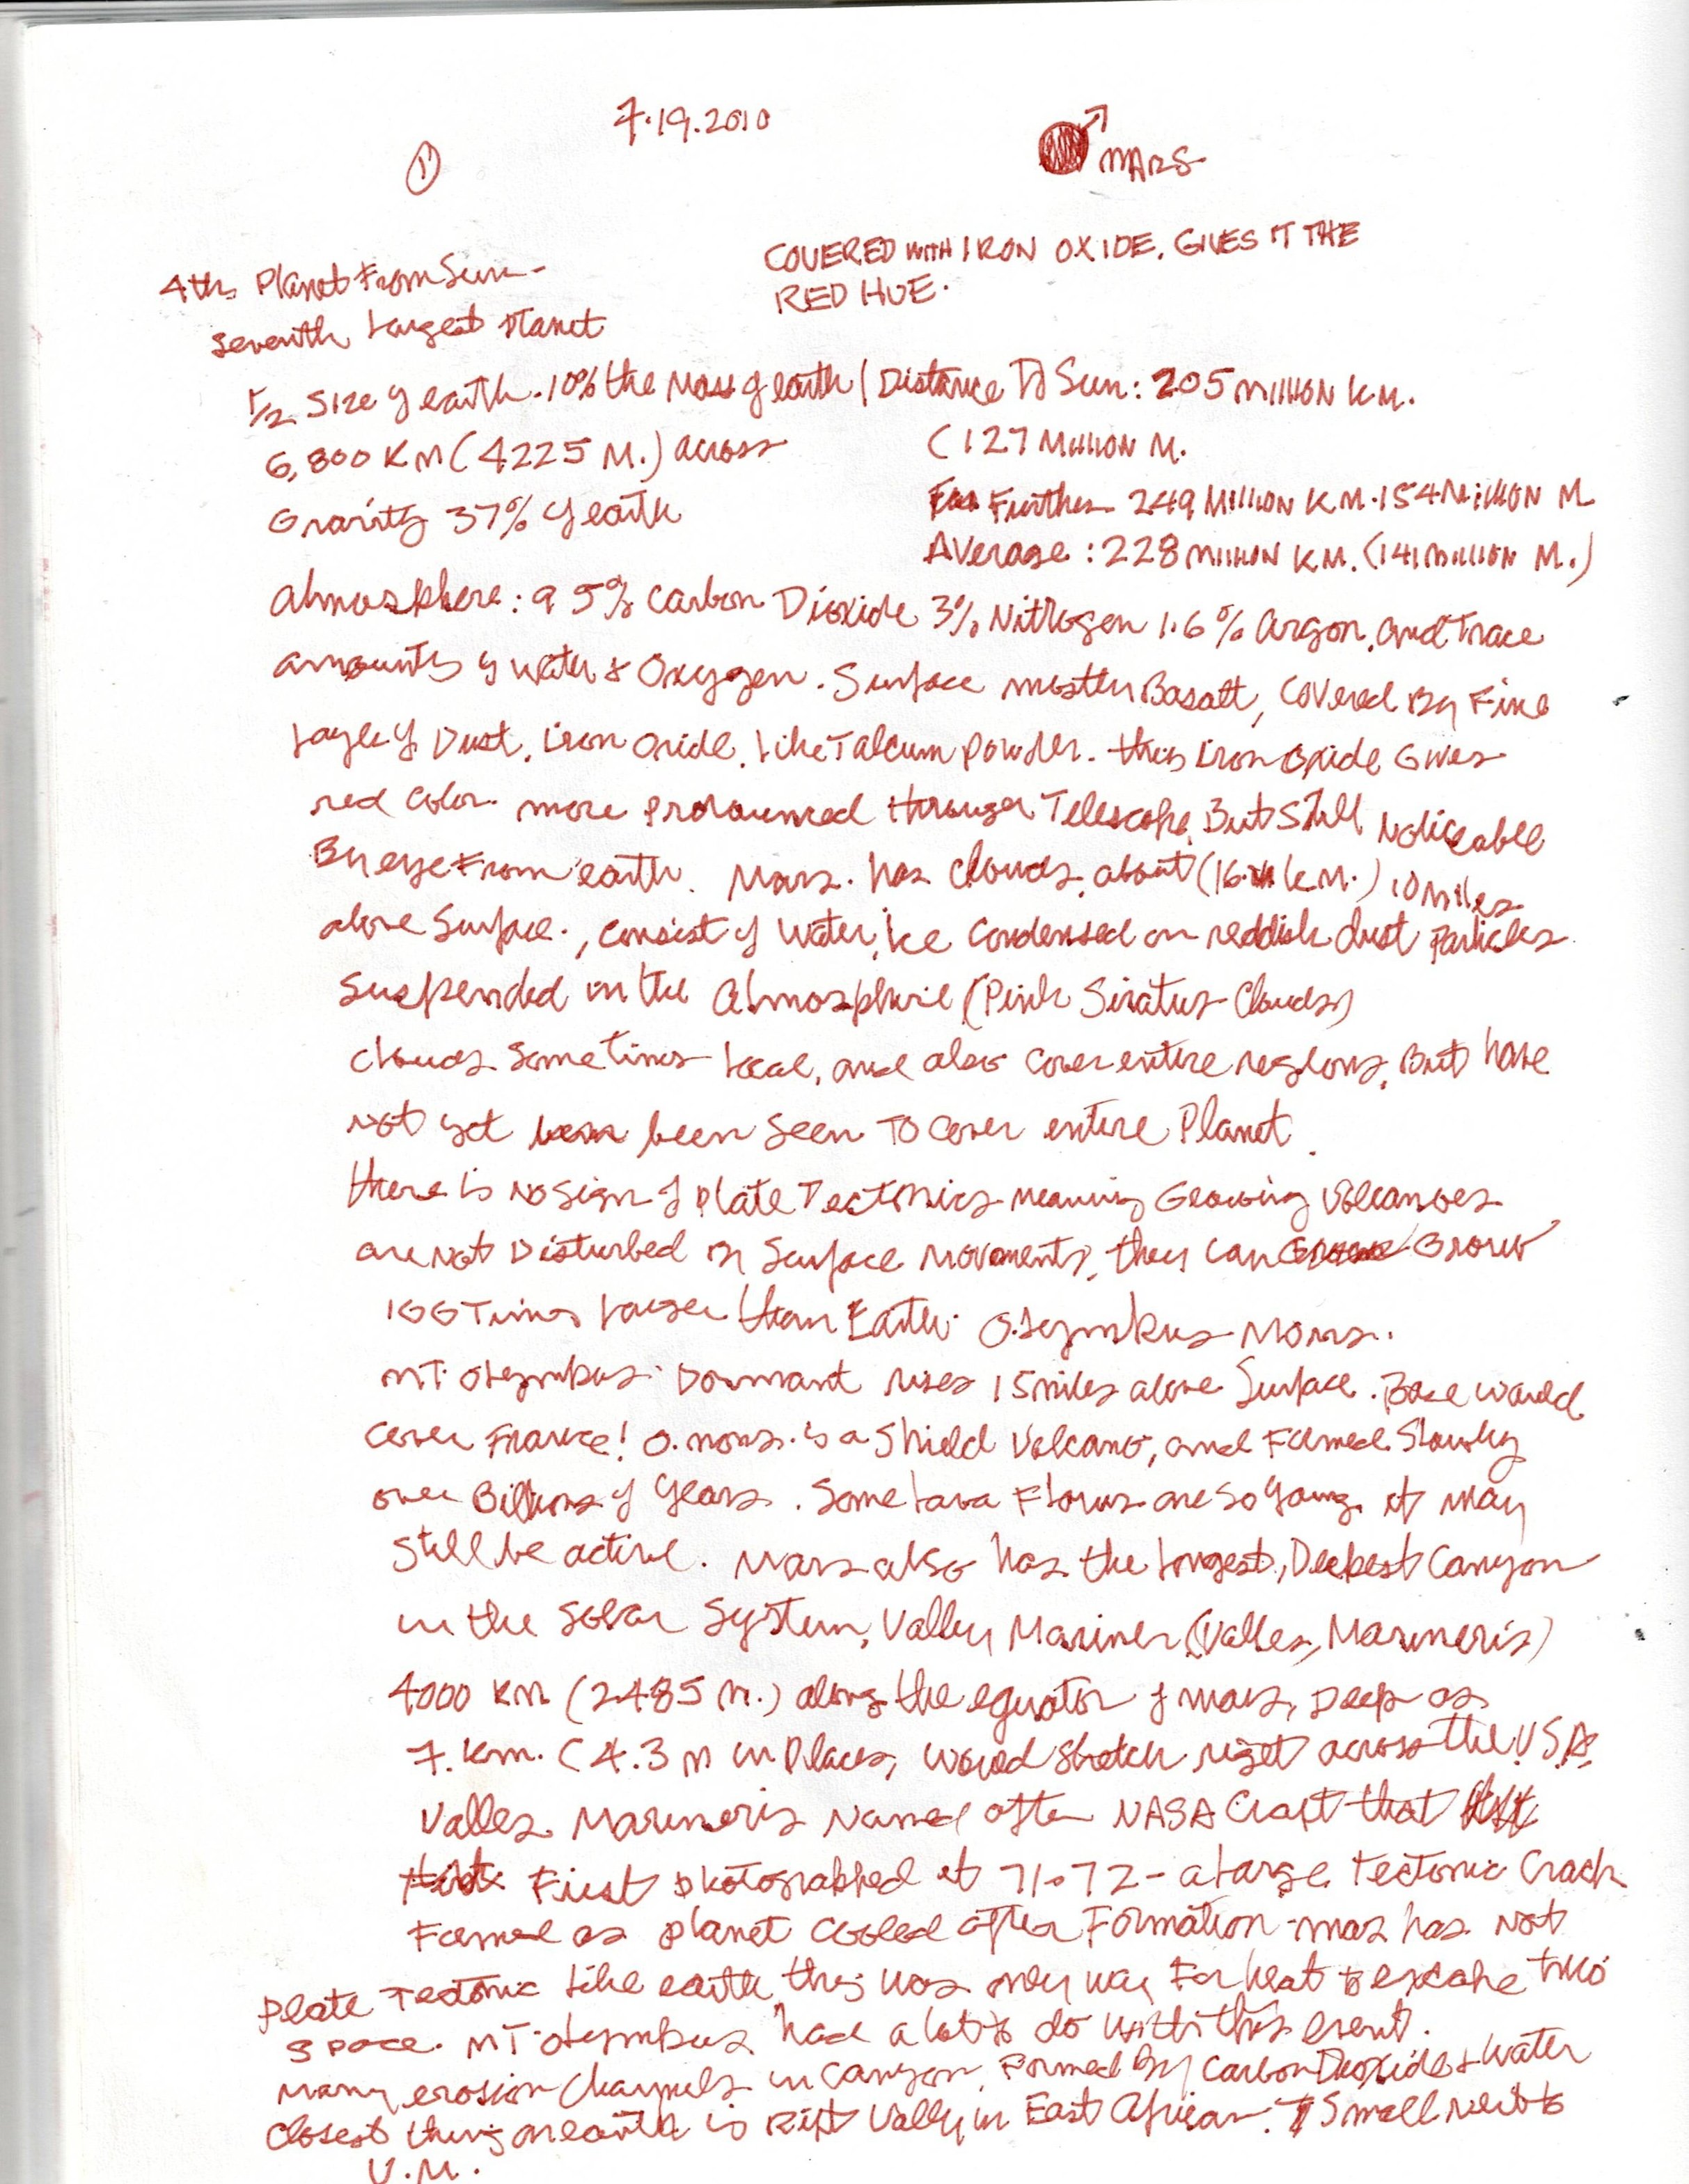 7.19.2010
1
MARS
COVERED WITH IRON OXIDE. GIVES IT THE
RED HUE.
4th Planet From Sun -
Seventh Largest Planet
1/2 Size of earth. 10% the Mass of earth / Distance To Sun: 205 MILLION KM.
6,800 KM (4225 M.) across
(127 MILLION M.
Gravity 37% of earth
Further 249 MILLION KM. 154 MILLION M
Average: 228 MILLION KM. (141 MILLION M.)
Atmosphere: 95% Carbon Dioxide 3% Nitrogen 1.6% Argon. and Trace
amounts of water & Oxygen. Surface mostly Basalt, Covered By Fine
Layer of Dust. Iron Oxide. Like Talcum Powder. this Iron Oxide Gives
red color. more pronounced through Telescope, But Still Noticeable
By eye From earth. Mars. has clouds, about (16 km.) 10 miles
above Surface., consist of Water, Ice Condensed on reddish dust particles
suspended in the Atmosphere (Pink Stratus Clouds)
Clouds sometimes local, and also cover entire regions, But have
not yet been seen To cover entire Planet.
there is No sign of plate Tectonics meaning Growing Volcanoes
are Not Disturbed By Surface Movements, they can Grow
100 Times Larger than Earth. Olympus Mons.
MT. Olympus. Dormant rises 15 miles above Surface. Base would
cover France! O. mons. is a Shield Volcano, and Formed Slowly
over Billions of Years. Some Lava Flows are so young it may
still be active. Mars also has the Longest, Deepest Canyon
in the Solar System, Valley Mariner (Valles, Marineris)
4000 KM (2485 M.) along the equator of mars, Deep as
7. Km. (4.3 M in Places, would stretch right across the U.S.A.
Valles Marineris Named after NASA Craft that
First photographed it 71.72 - a Large Tectonic Crack
Formed as planet cooled after Formation - mars has Not
plate Tectonic Like earth, this was only way For heat to escape into
space. MT. Olympus had a lot to do with this event.
Many erosion Channels in Canyon, Formed By Carbon Dioxide + Water
closest thing on earth is Rift Vally in East African. Small next to
V.M.